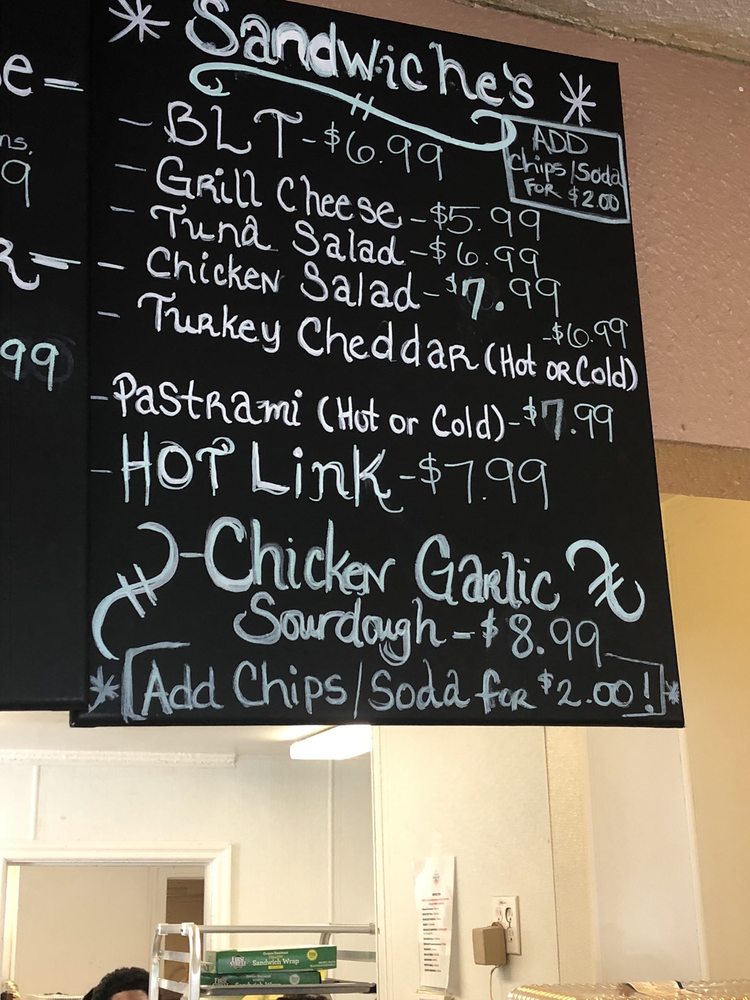 * Sandwiche's *
- BLT - $6.99
ADD
Chips/Soda
FOR $2.00
- Grill Cheese - $5.99
- Tuna Salad - $6.99
- Chicken Salad - $7.99
- Turkey Cheddar (Hot or Cold) - $6.99
- Pastrami (Hot or Cold) - $7.99
- HOT Link - $7.99
- Chicken Garlic
Sourdough - $8.99
* [Add Chips/Soda for $2.00!] *
e -
ns.
9
R -
99
Sandwich Wrap